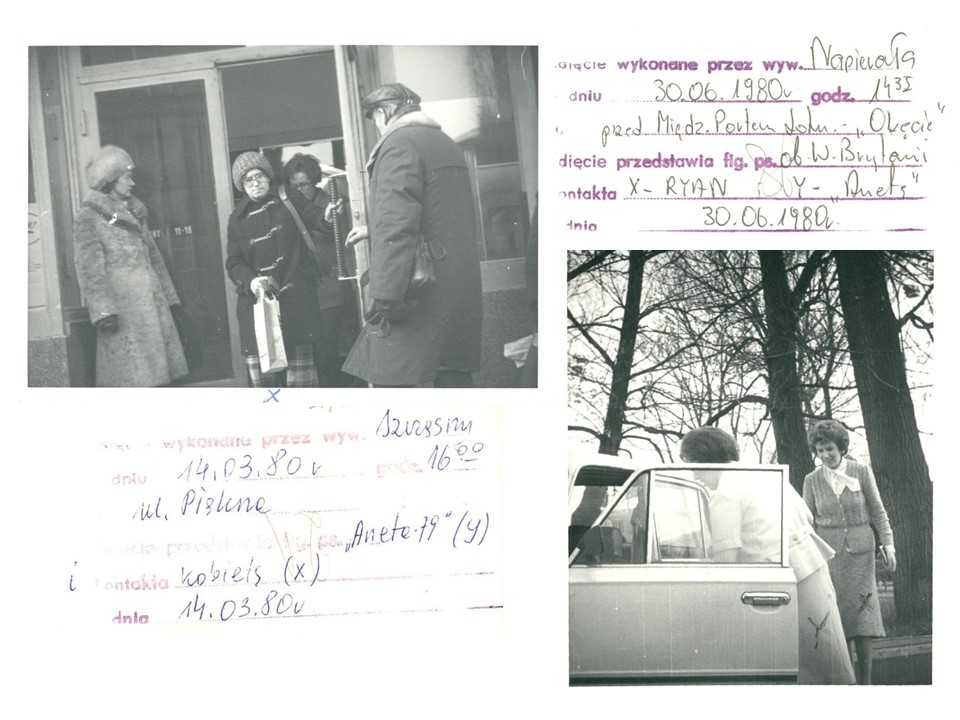 djęcie wykonane przez wyw. Napierała
dniu 30.06.1980r godz. 14 35
przed Międz. Portem Lotn. - „Okęcie"
djęcie przedstawia fig. ps. ob. W. Brytanii
ontakta X- RYAN Y- „Aneta"
dnia 30.06.1980r.
11-18
X
wykonane przez wyw. Szczęsny
dniu 14.03.80r godz. 16 00
ul. Piękna
djęcie przedstawia fig. ps. „Aneta-79" (Y)
i ontakta kobietą (X)
dnia 14.03.80r
X
Y